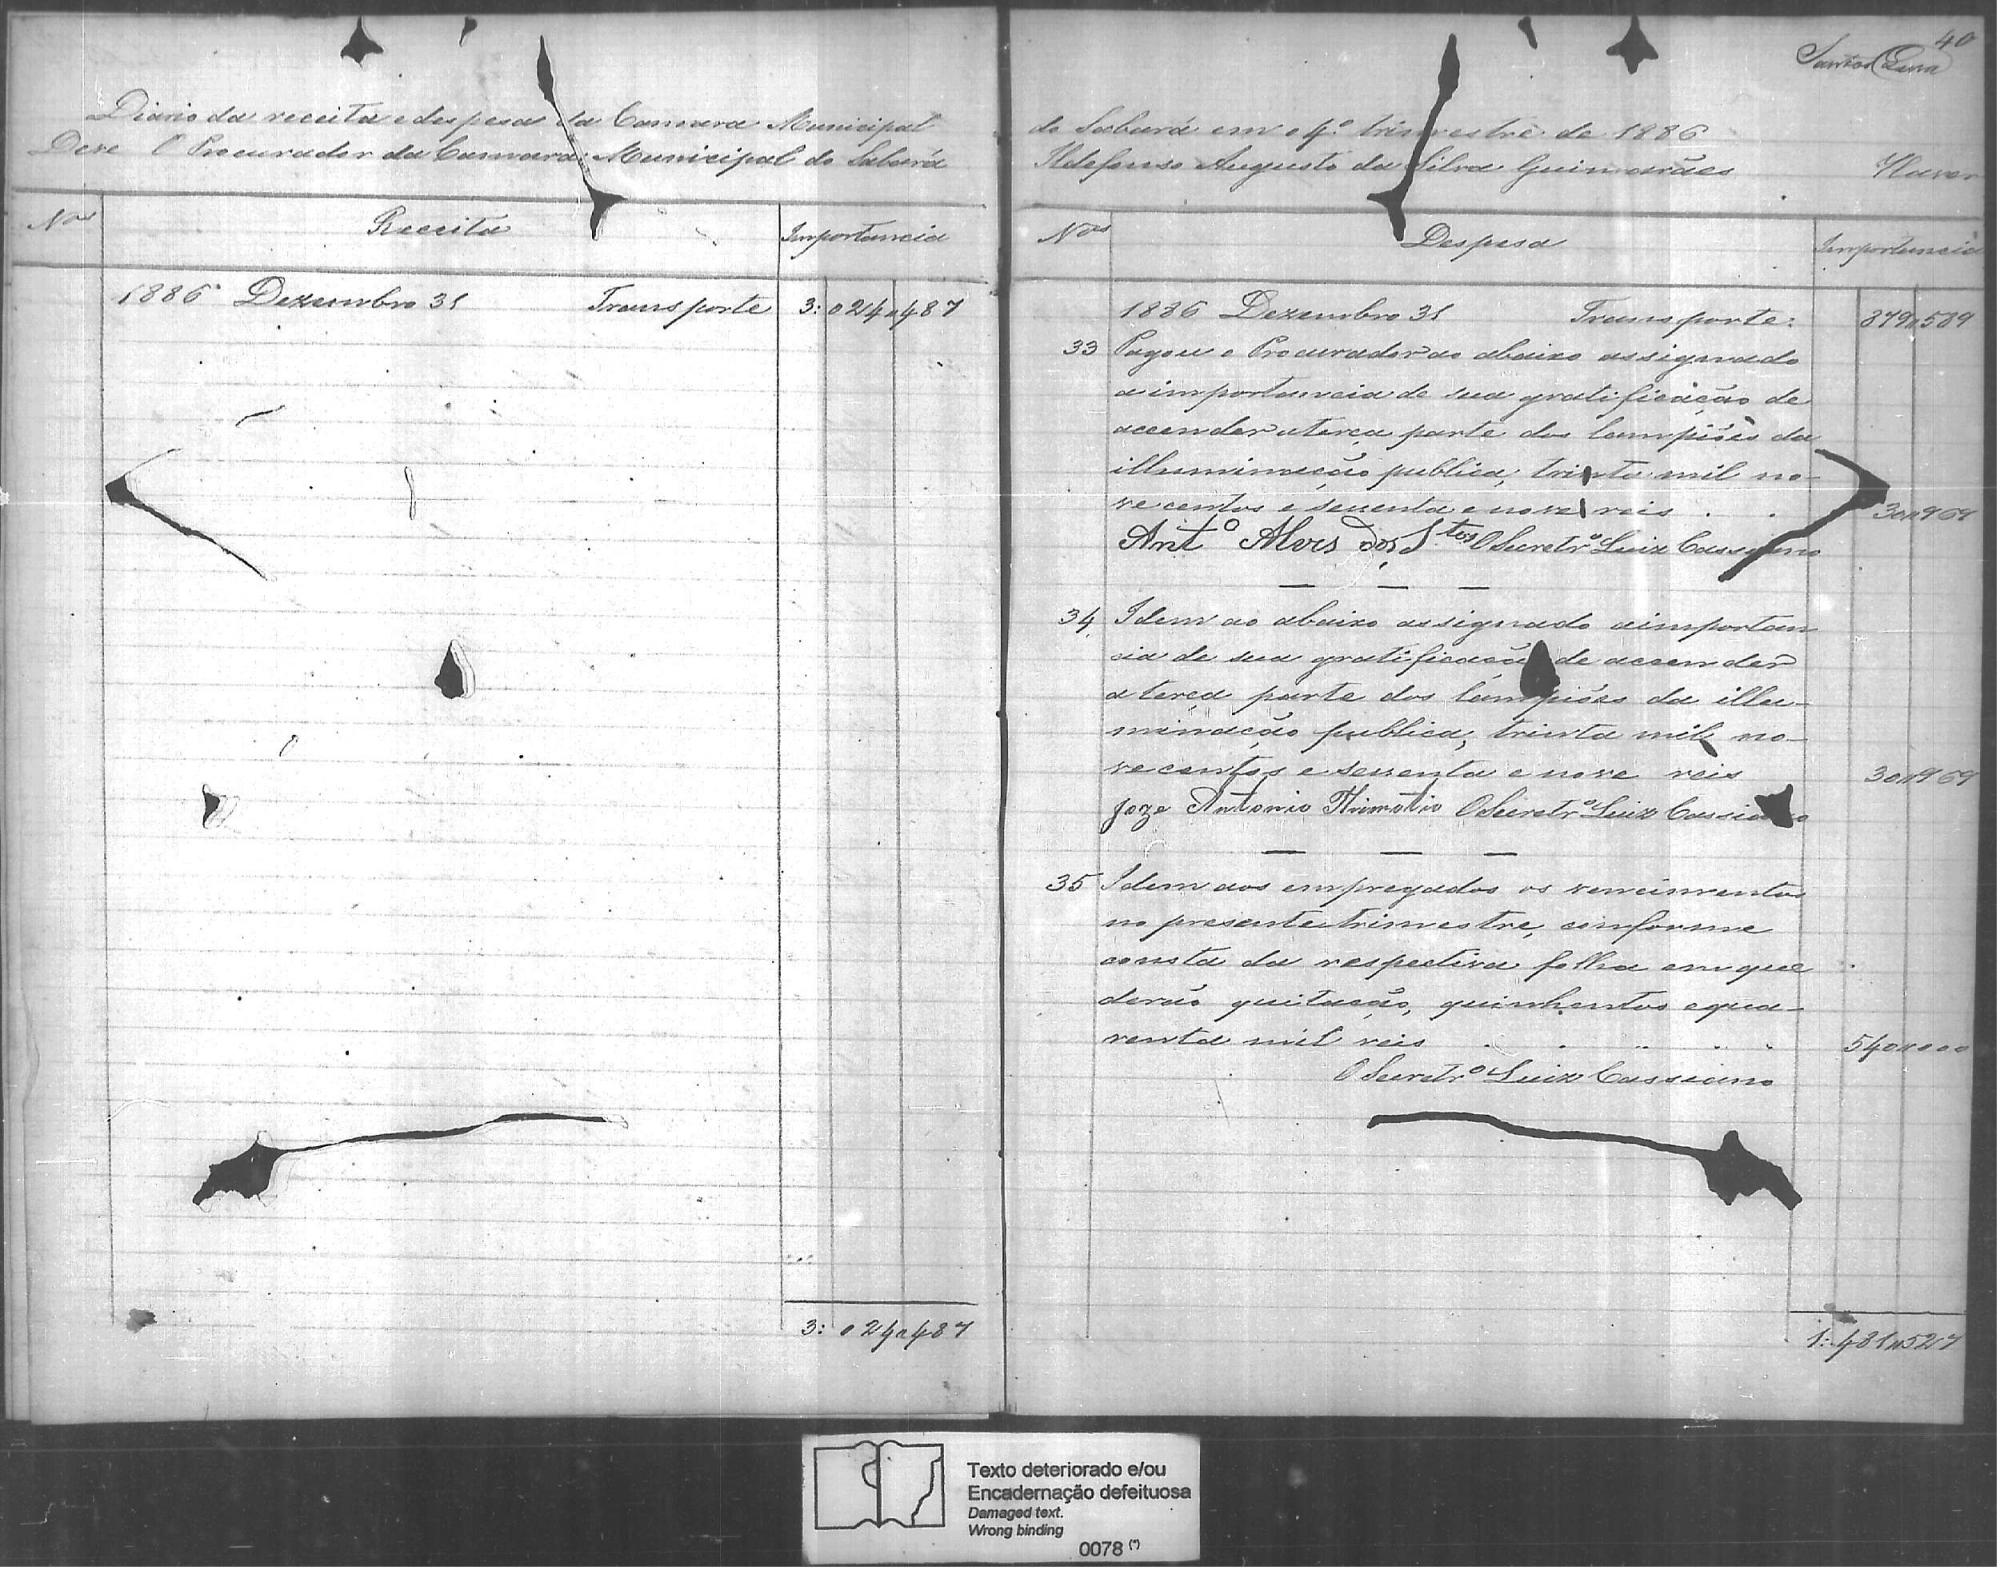 40
Santos Lima
Diario da receita e despesa da Camara Municipal
Deve O Procurador da Camara Municipal do Sabará
Nos Receita Importancia
1886 Dezembro 31 Transporte 3:024"487
3:024"487
do Sabará em o 4º trimestre de 1886
Ildefonso Augusto da Silva Guimarães Haver
Nos Despesa Importancia
1886 Dezembro 31 Transporte: 879"589
33 Pagou o Procurador ao abaixo assignado
a importancia de sua gratificação de
accender a terça parte dos lampiões da
illuminação publica, trinta mil no-
vecentos e sessenta e nove reis . . 30"969
Antº Alves dos Stos O Secretrº Luiz Cassiano
34 Idem ao abaixo assignado a importan
cia de sua gratificação de accender
a terça parte dos lampiões da illu-
minação publica, trinta mil no-
vecentos e sessenta e nove reis 30"969
Joze Antonio Thimotio O Secretrº Luiz Cassiano
35 Idem aos empregados os vencimentos
no presente trimestre, conforme
consta da respectiva folha em que
derão quitação, quinhentos e qua-
renta mil reis 540"000
O Secretrº Luiz Cassiano
1:481"527
Texto deteriorado e/ou
Encadernação defeituosa
Damaged text.
Wrong binding
0078 (*)